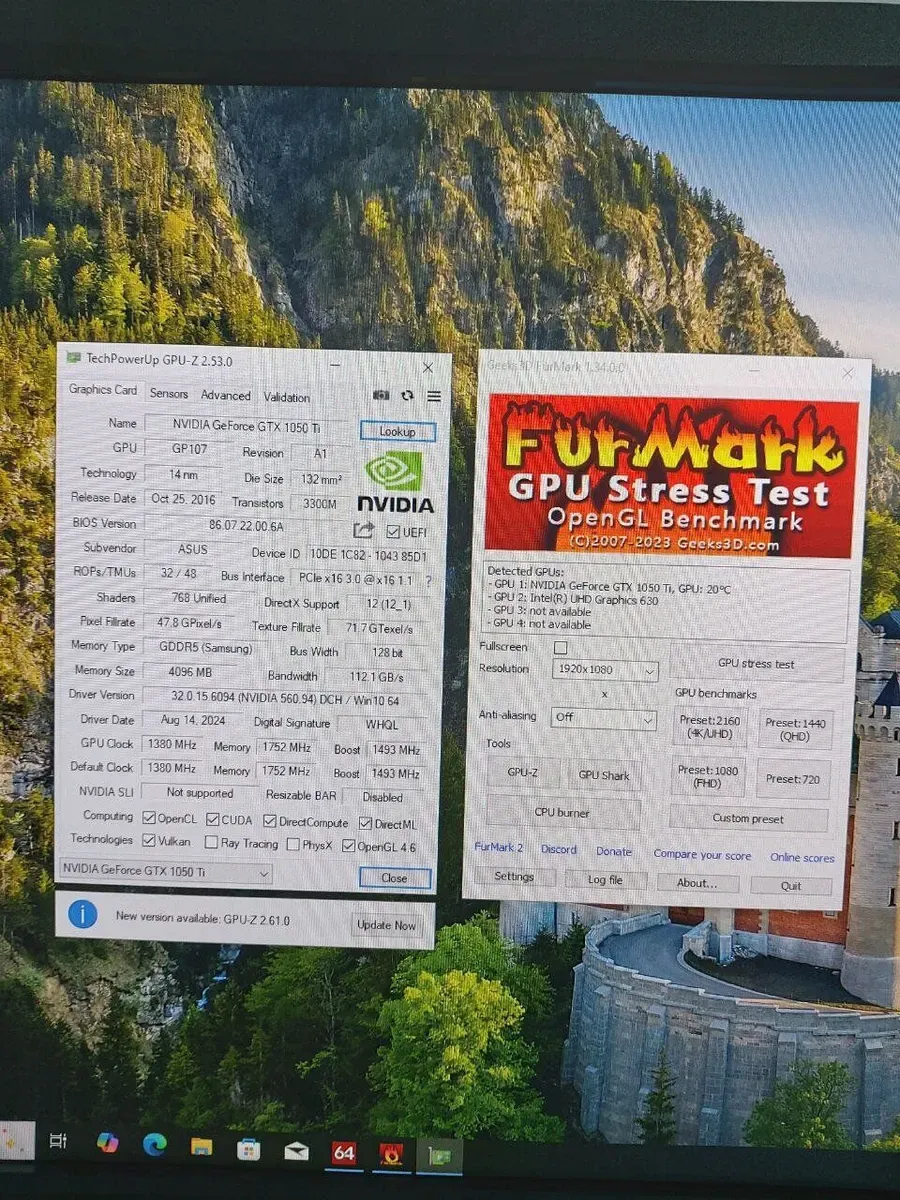 TechPowerUp GPU-Z 2.53.0
Graphics Card Sensors Advanced Validation
Name NVIDIA GeForce GTX 1050 Ti Lookup
GPU GP107 Revision A1
Technology 14 nm Die Size 132 mm²
Release Date Oct 25, 2016 Transistors 3300M
NVIDIA
BIOS Version 86.07.22.00.6A UEFI
Subvendor ASUS Device ID 10DE 1C82 - 1043 85D1
ROPs/TMUs 32 / 48 Bus Interface PCIe x16 3.0 @ x16 1.1 ?
Shaders 768 Unified DirectX Support 12 (12_1)
Pixel Fillrate 47.8 GPixel/s Texture Fillrate 71.7 GTexel/s
Memory Type GDDR5 (Samsung) Bus Width 128 bit
Memory Size 4096 MB Bandwidth 112.1 GB/s
Driver Version 32.0.15.6094 (NVIDIA 560.94) DCH / Win10 64
Driver Date Aug 14, 2024 Digital Signature WHQL
GPU Clock 1380 MHz Memory 1752 MHz Boost 1493 MHz
Default Clock 1380 MHz Memory 1752 MHz Boost 1493 MHz
NVIDIA SLI Not supported Resizable BAR Disabled
Computing OpenCL CUDA DirectCompute DirectML
Technologies Vulkan Ray Tracing PhysX OpenGL 4.6
NVIDIA GeForce GTX 1050 Ti Close
New version available: GPU-Z 2.61.0 Update Now
Geeks3D FurMark 1.34.0.0
FurMark
GPU Stress Test
OpenGL Benchmark
(C)2007-2023 Geeks3D.com
Detected GPUs:
- GPU 1: NVIDIA GeForce GTX 1050 Ti, GPU: 20°C
- GPU 2: Intel(R) UHD Graphics 630
- GPU 3: not available
- GPU 4: not available
Fullscreen
Resolution 1920x1080 GPU stress test
x GPU benchmarks
Anti-aliasing Off Preset:2160 (4K/UHD) Preset:1440 (QHD)
Tools
GPU-Z GPU Shark Preset:1080 (FHD) Preset:720
CPU burner Custom preset
FurMark 2 Discord Donate Compare your score Online scores
Settings Log file About... Quit
64